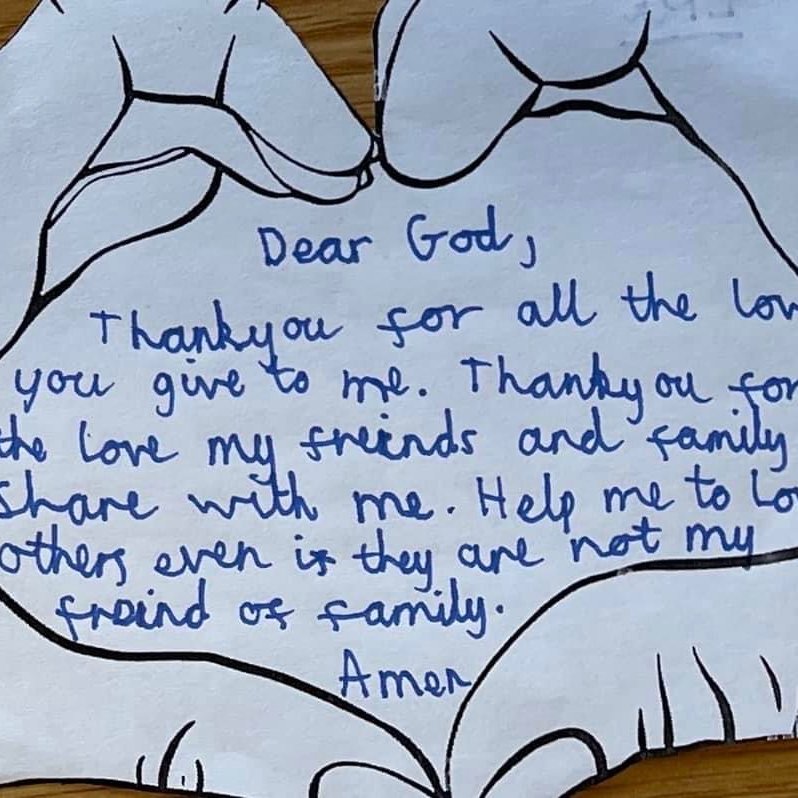 Dear God,
Thankyou for all the lov
you give to me. Thankyou for
the love my freinds and family
share with me. Help me to lo
others even if they are not my
froind of family.
Amen